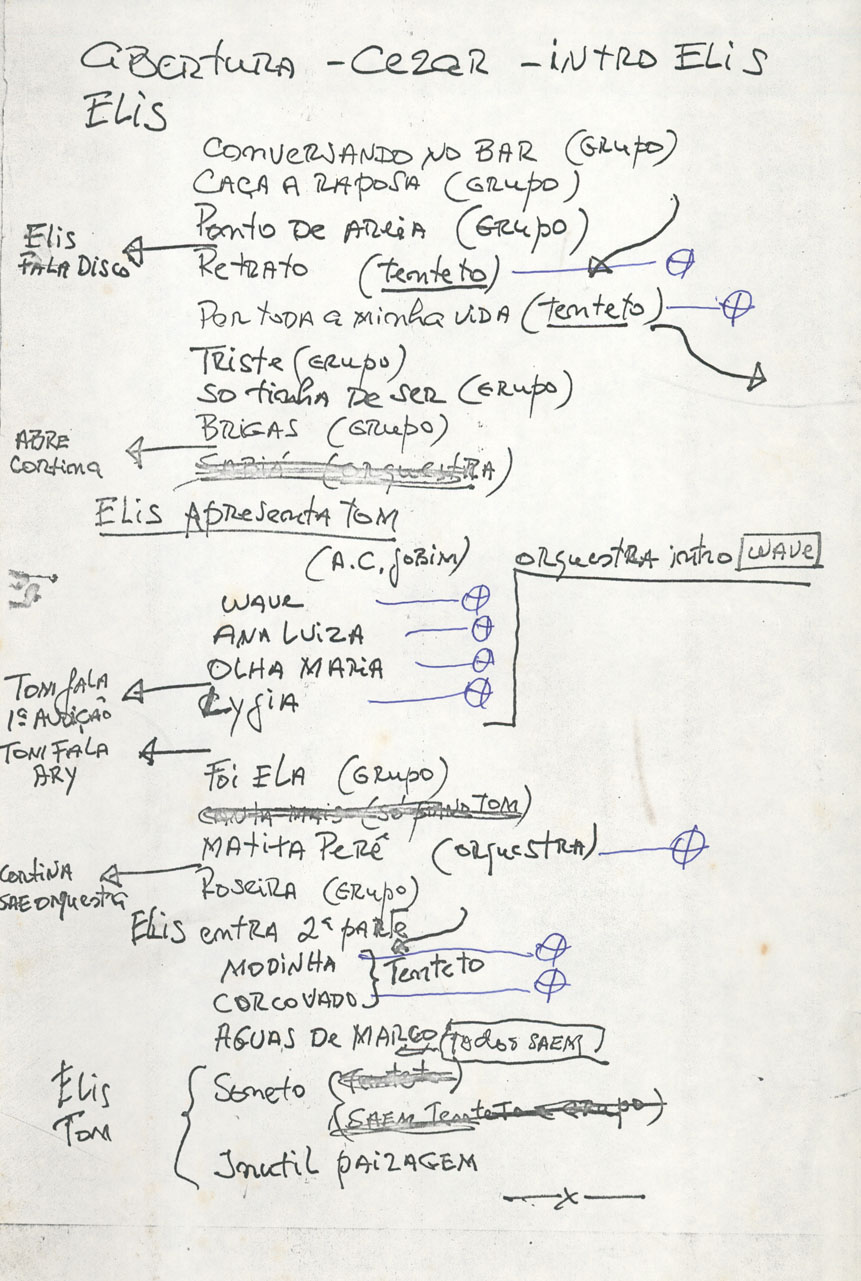 ABERTURA - CEZAR - INTRO ELIS
ELIS
CONVERSANDO NO BAR (GRUPO)
CAÇA A RAPOSA (GRUPO)
PONTO DE AREIA (GRUPO)
ELIS
FALA DISCO
RETRATO (tenteto)
POR TODA A MINHA VIDA (tenteto)
TRISTE (GRUPO)
SO TINHA DE SER (GRUPO)
BRIGAS (GRUPO)
ABRE
CORTINA
SABIÁ (ORQUESTRA)
ELIS APRESENTA TOM
(A.C. JOBIM)
ORQUESTRA INTRO WAVE
WAVE
ANA LUIZA
OLHA MARIA
LYGIA
TOM FALA
1ª AUDIÇÃO
TOM FALA
ARY
FOI ELA (GRUPO)
CANTA MAIS (SÓ PIANO TOM)
MATITA PERÊ (ORQUESTRA)
CORTINA
SAE ORQUESTRA
ROSEIRA (GRUPO)
ELIS ENTRA 2ª PARTE
MODINHA
TENTETO
CORCOVADO
AGUAS DE MARÇO (TODOS SAEM)
ELIS
TOM
SONETO (Tenteto)
(SAEM TENTETO e GRUPO)
INUTIL PAIZAGEM
x